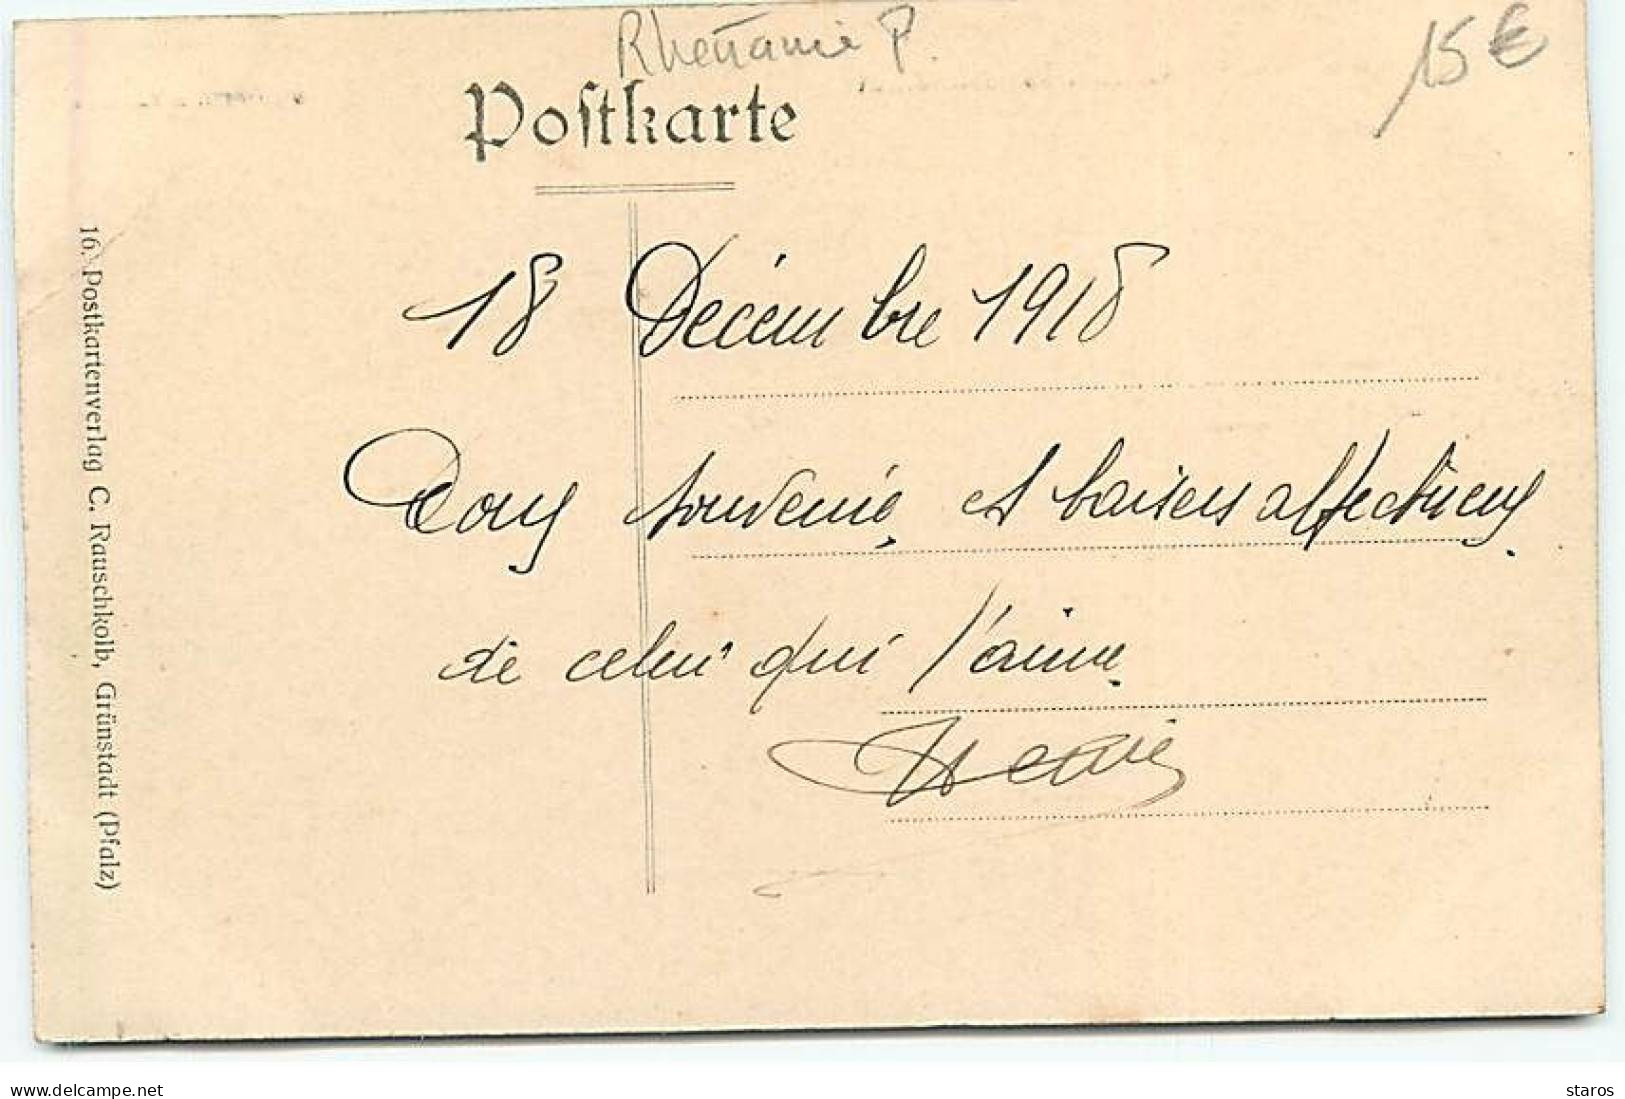 Rhénanie P.
15 €
Postkarte
18 Décembre 1918
Doux souvenir, et baisers affectueux.
de celui qui t'aime.
16. Postkartenverlag C. Rauschkolb, Grünstadt (Pfalz)
www.delcampe.net
staros